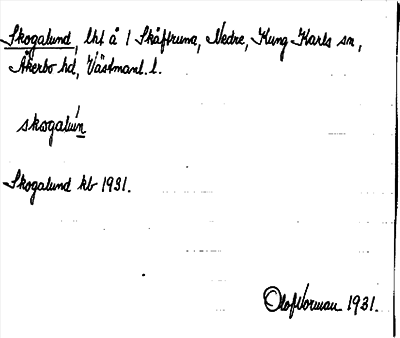 Skogalund, lht å 1 Skäffruna, Nedre, Kung Karls sn,
Åkerbo hd, Västmanl. l.
skogalun
Skogalund kb 1931.
Olof Vorman 1931.